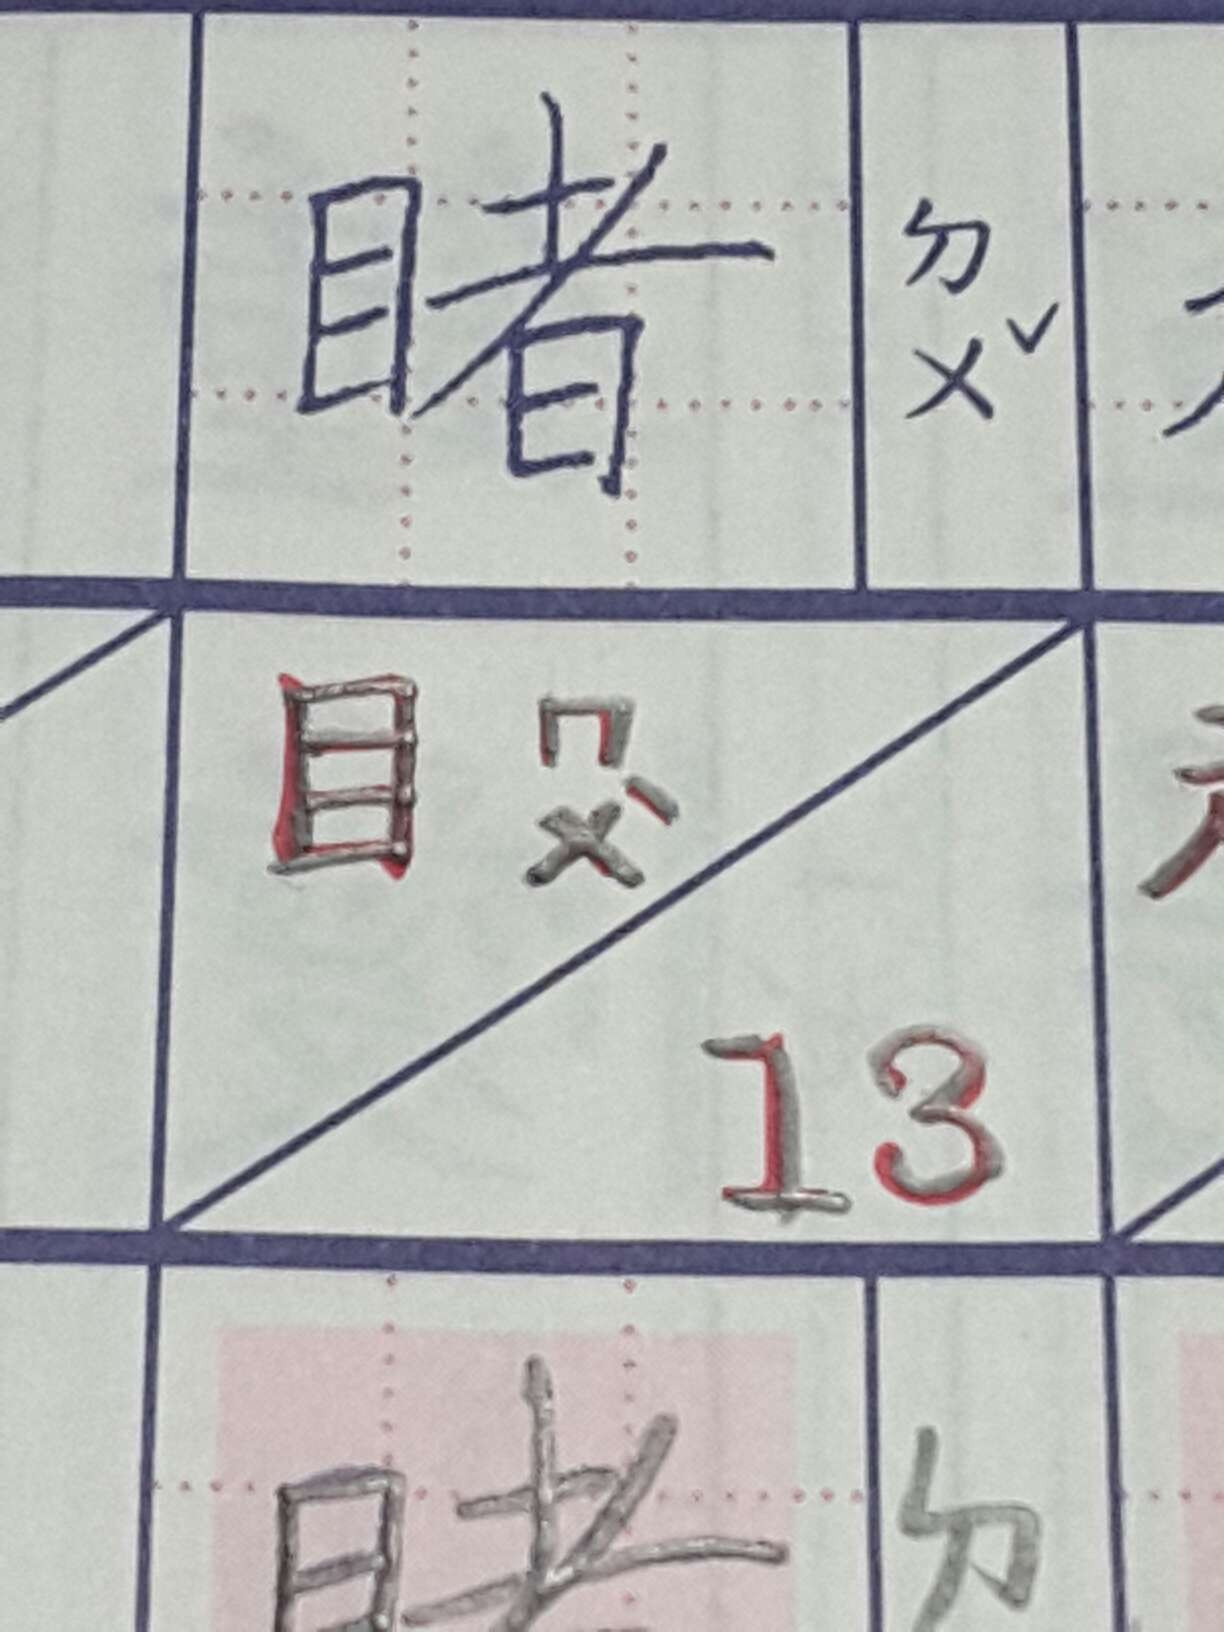 睹 ㄉㄨˇ
目 ㄇㄨˋ
13
睹 ㄉ